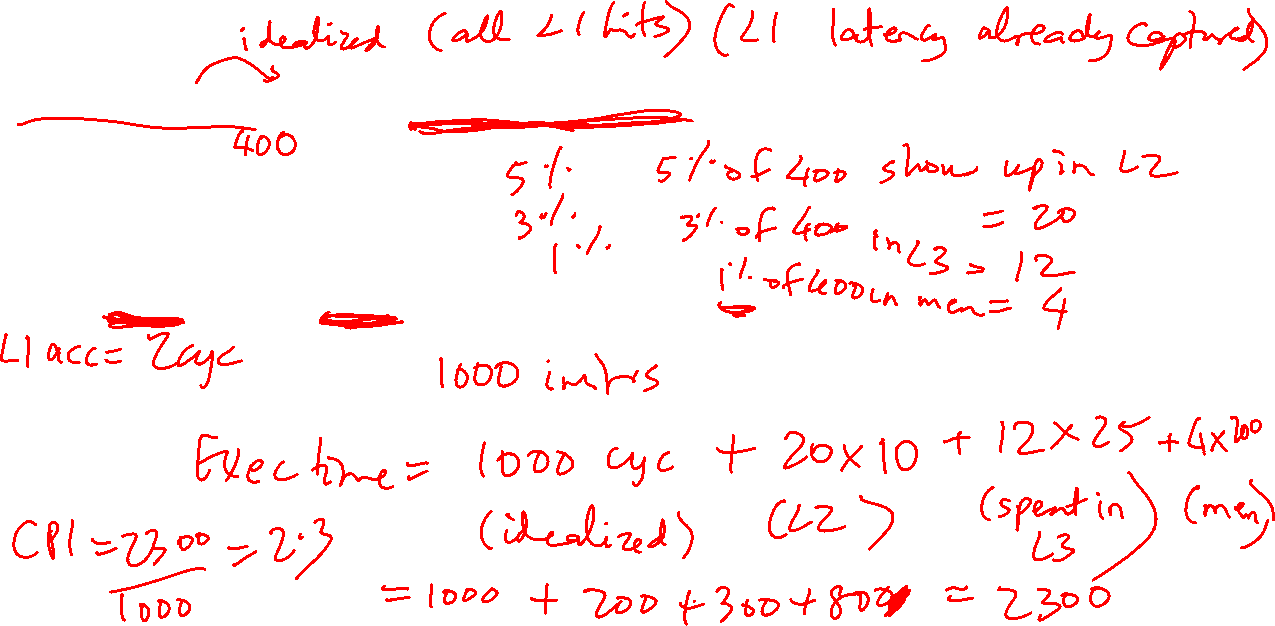 idealized (all L1 hits) (L1 latency already captured)
400
5% 5% of 400 show up in L2
= 20
3% 3% of 400 in L3 = 12
1% 1% of 400 in mem = 4
L1 acc = 2cyc
1000 instrs
Exec time = 1000 cyc + 20x10 + 12x25 + 4x200
(idealized) (L2) (spent in L3) (mem)
CPI = 2300 / 1000 = 2.3
= 1000 + 200 + 300 + 800 = 2300